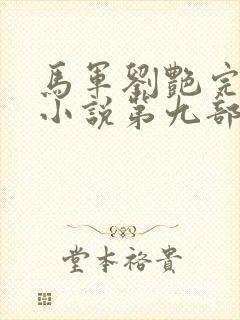 馬軍劉艷完
小說第九部
堂本裕貴